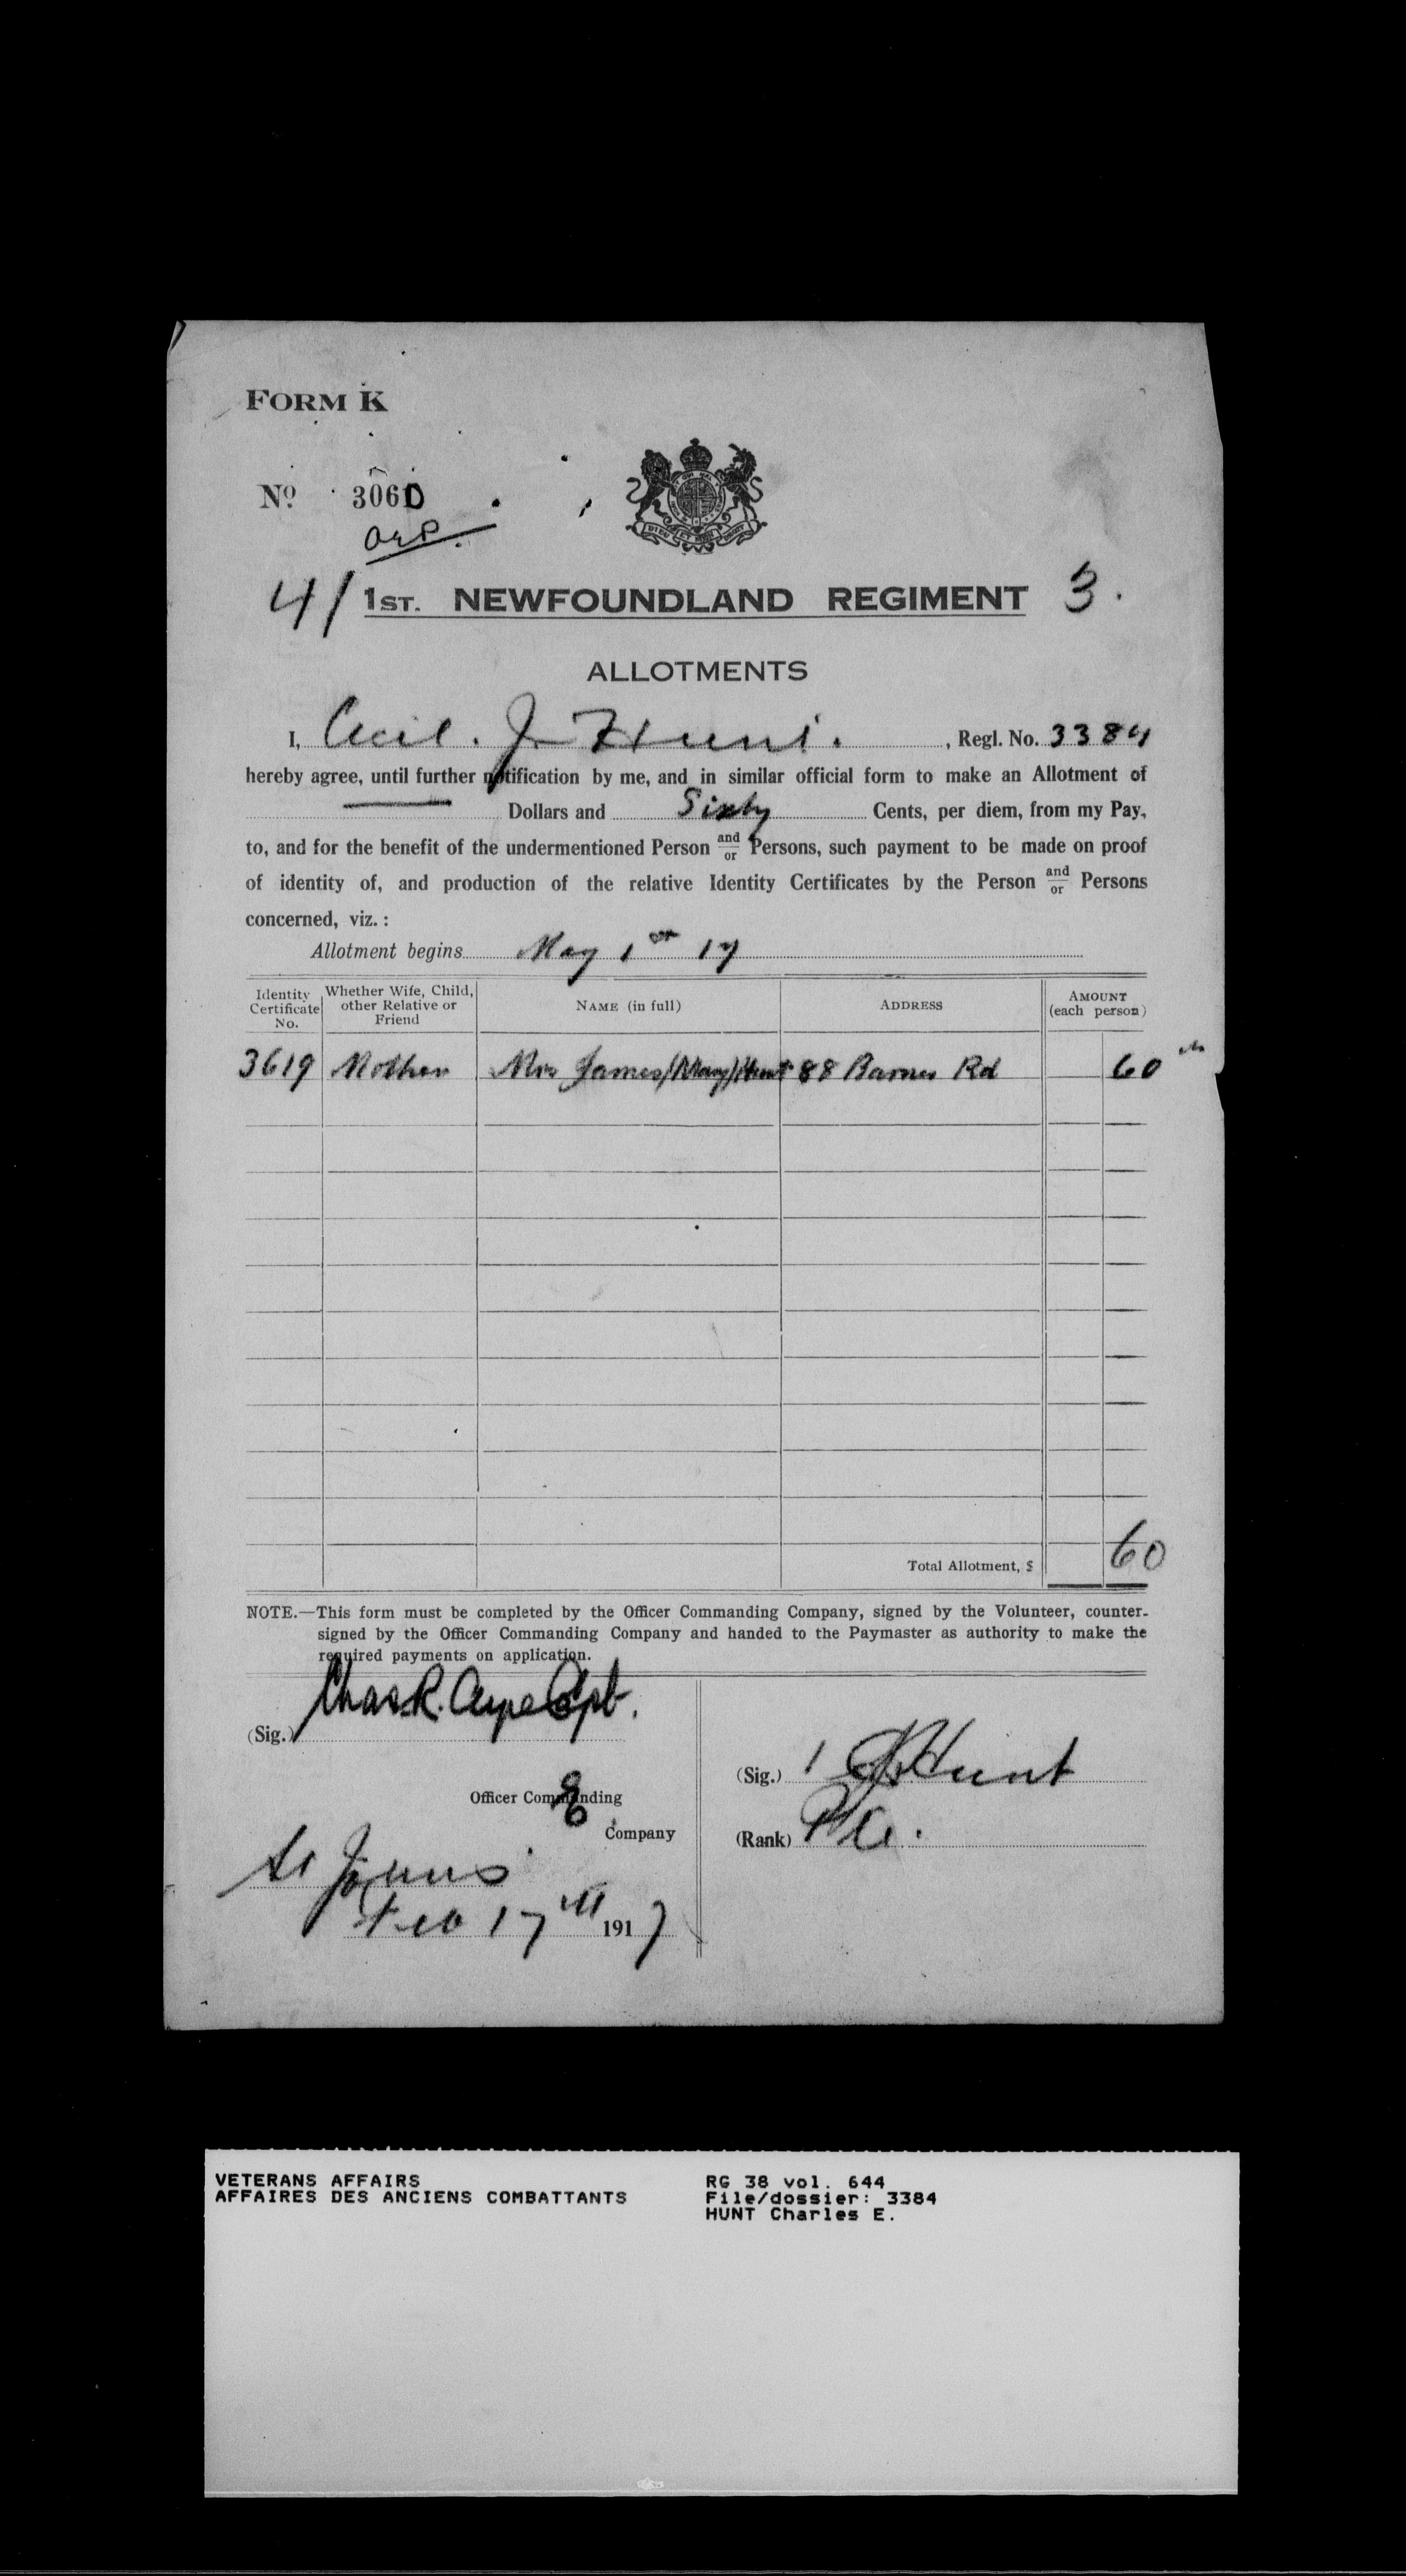 FORM K
No. 3060
4/ 1ST. NEWFOUNDLAND REGIMENT 3.
ALLOTMENTS
I, Cecil. J. Hunt. , Regl. No. 3384
hereby agree, until further notification by me, and in similar official form to make an Allotment of
Dollars and Sixty Cents, per diem, from my Pay,
to, and for the benefit of the undermentioned Person and/or Persons, such payment to be made on proof
of identity of, and production of the relative Identity Certificates by the Person and/or Persons
concerned, viz. :
Allotment begins May 1st 17
Identity Certificate No. Whether Wife, Child, other Relative or Friend NAME (in full) ADDRESS AMOUNT (each person)
3619 Mother Mrs James/(Mary)/Hunt 88 Barnes Rd 60
Total Allotment, $ 60
NOTE.—This form must be completed by the Officer Commanding Company, signed by the Volunteer, counter-
signed by the Officer Commanding Company and handed to the Paymaster as authority to make the
required payments on application.
(Sig.) Chas. R. Ayre Capt.
(Sig.) CJ Hunt
Officer Commanding
E Company
(Rank) Pte.
St Johns
Feb 17th 1917
VETERANS AFFAIRS
AFFAIRES DES ANCIENS COMBATTANTS
RG 38 vol. 644
File/dossier: 3384
HUNT Charles E.